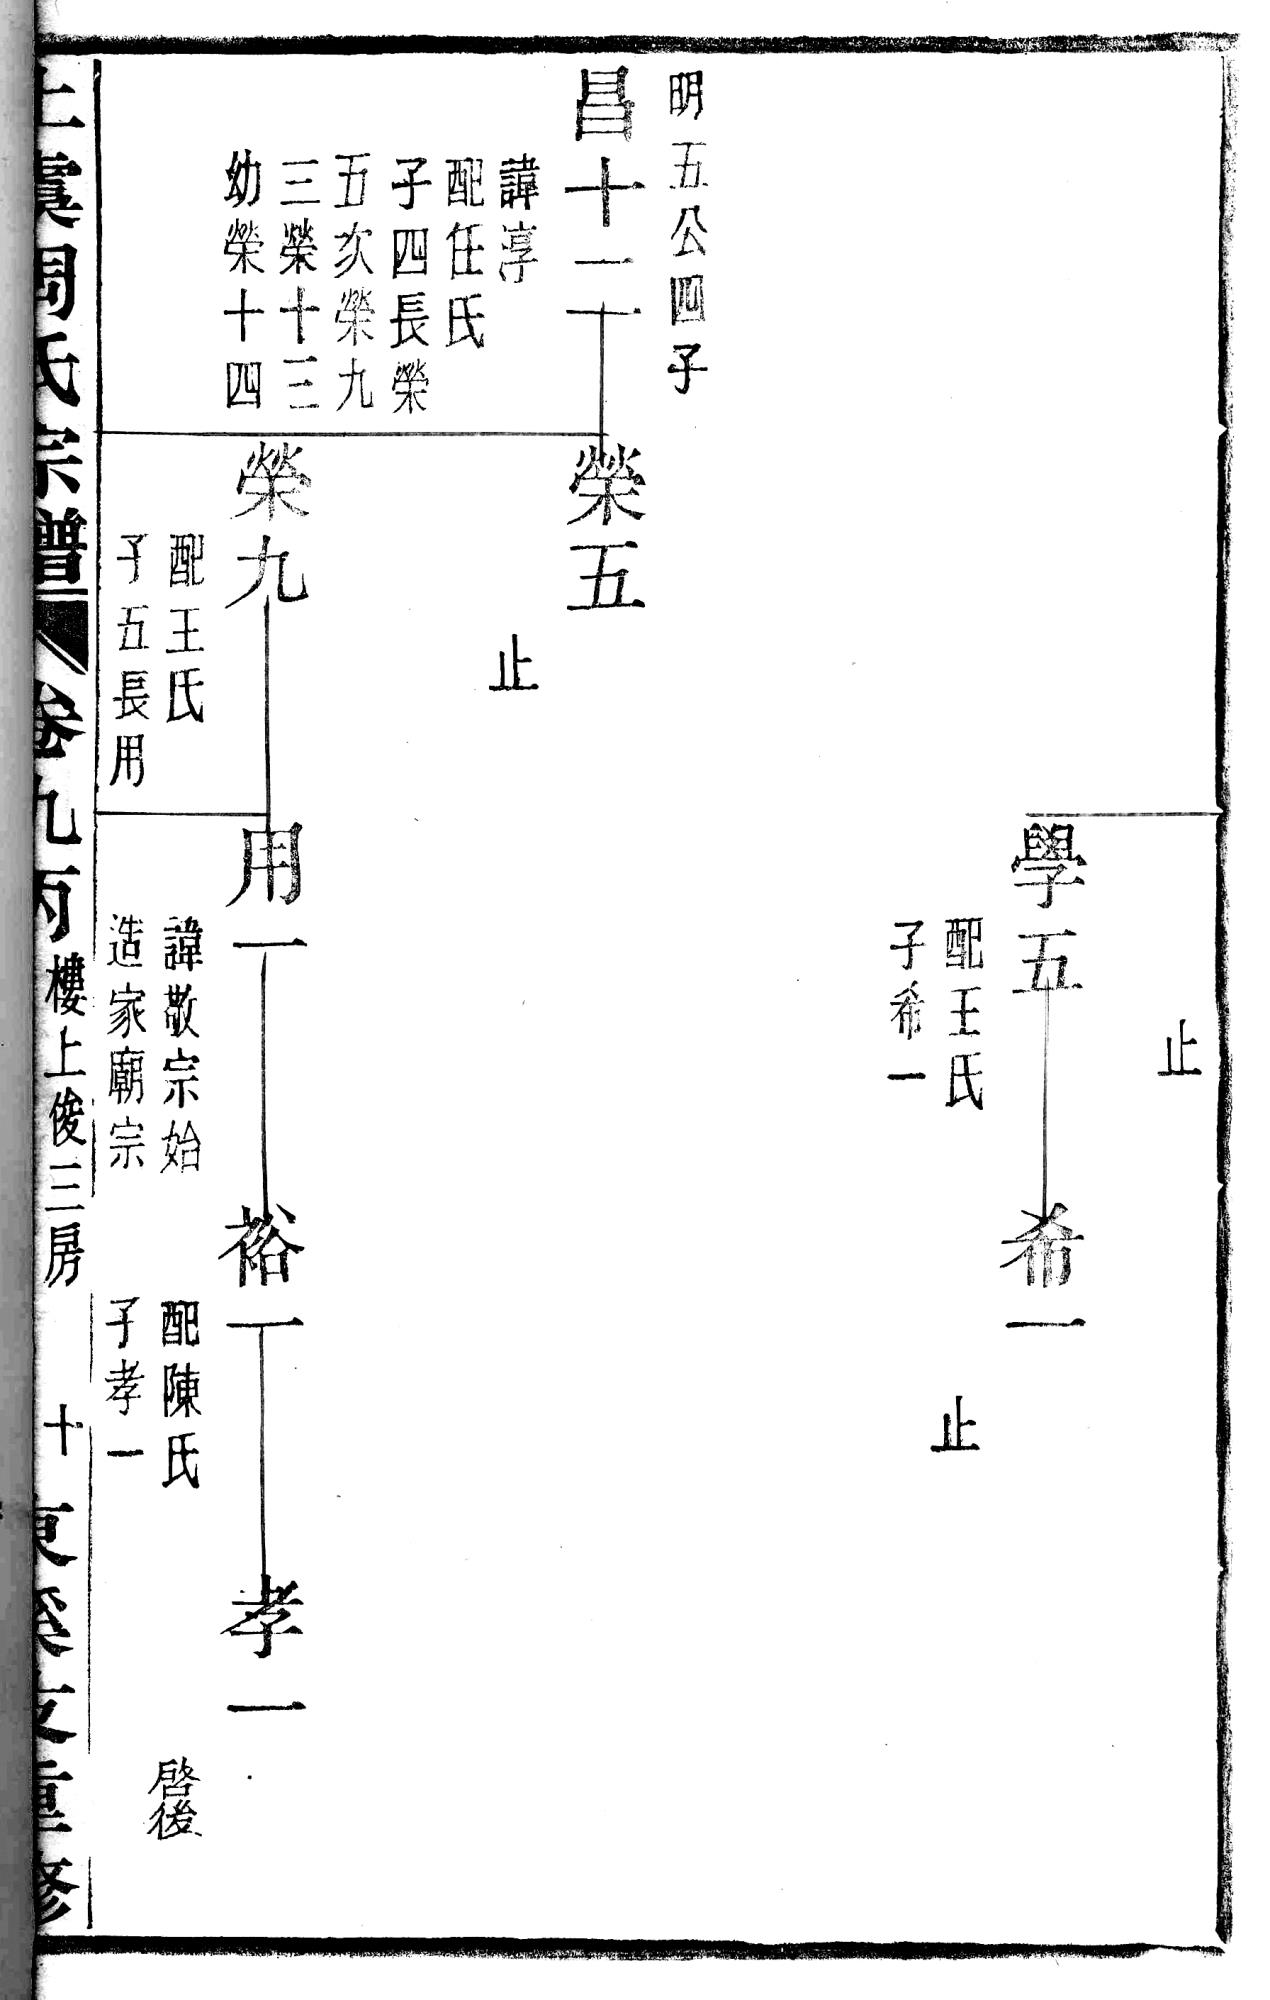 止
學五
配王氏
子希一
希一
止
明五公四子
昌十二
諱淳
配任氏
子四長榮
五次榮九
三榮十三
幼榮十四
榮五
止
榮九
配王氏
子五長用
用一
諱敬宗始
造家廟宗
裕一
配陳氏
子孝一
孝一
啓後
上虞周氏宗譜
卷九丙
樓上俊三房
十
支重修